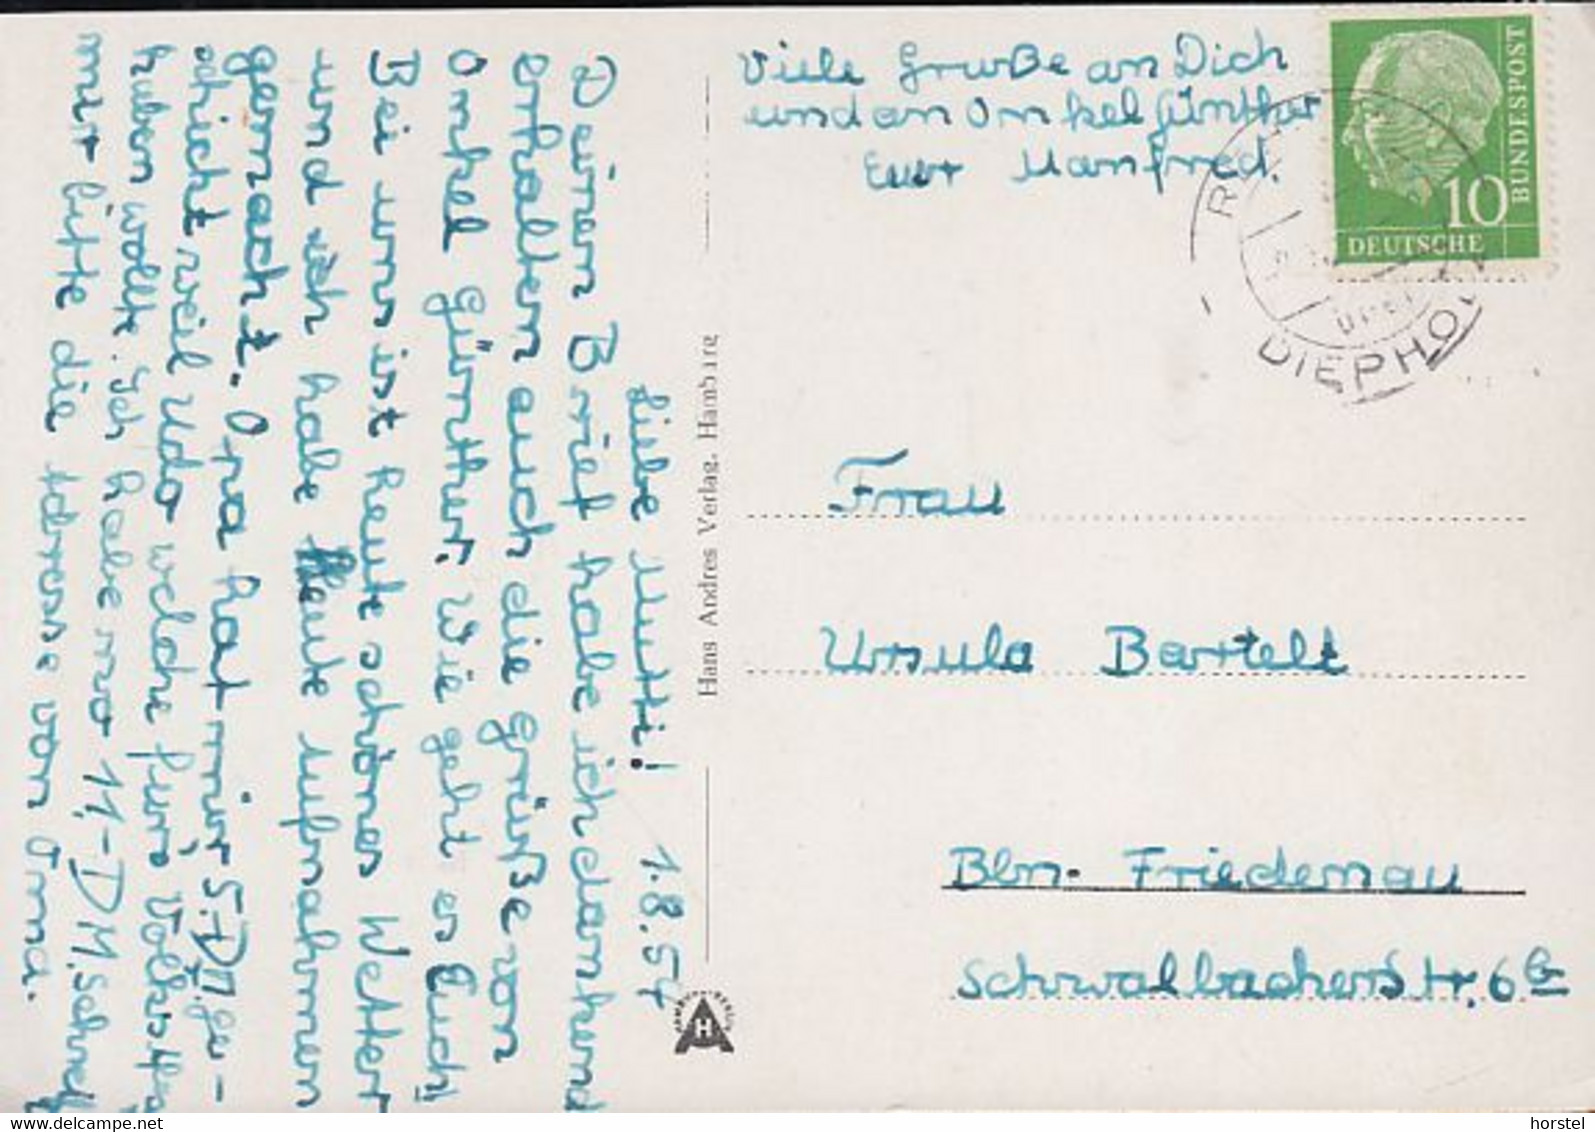 Liebe Mutti! 1.8.57
Deinen Brief habe ich dankend
erhalten auch die Grüße von
Onkel Günther. Wie geht es Euch
Bei uns ist heute schönes Wetter
und ich habe heute
gemacht. Opa hat mir 5.-DM ge-
schickt weil Udo welche fürs
haben wollte. Ich habe nro 11-DM. Schreib
mir bitte die Adresse von Oma.
Viele Grüße an Dich
und an Onkel Günther
Euer Manfred.
BUNDESPOST
10
DEUTSCHE
DIEPHOL
Hans Andres Verlag, Hamburg
Frau
Ursula Bartelt
Bln. Friedenau
Schwalbacherstr. 6
H
delcampe.net
horstel